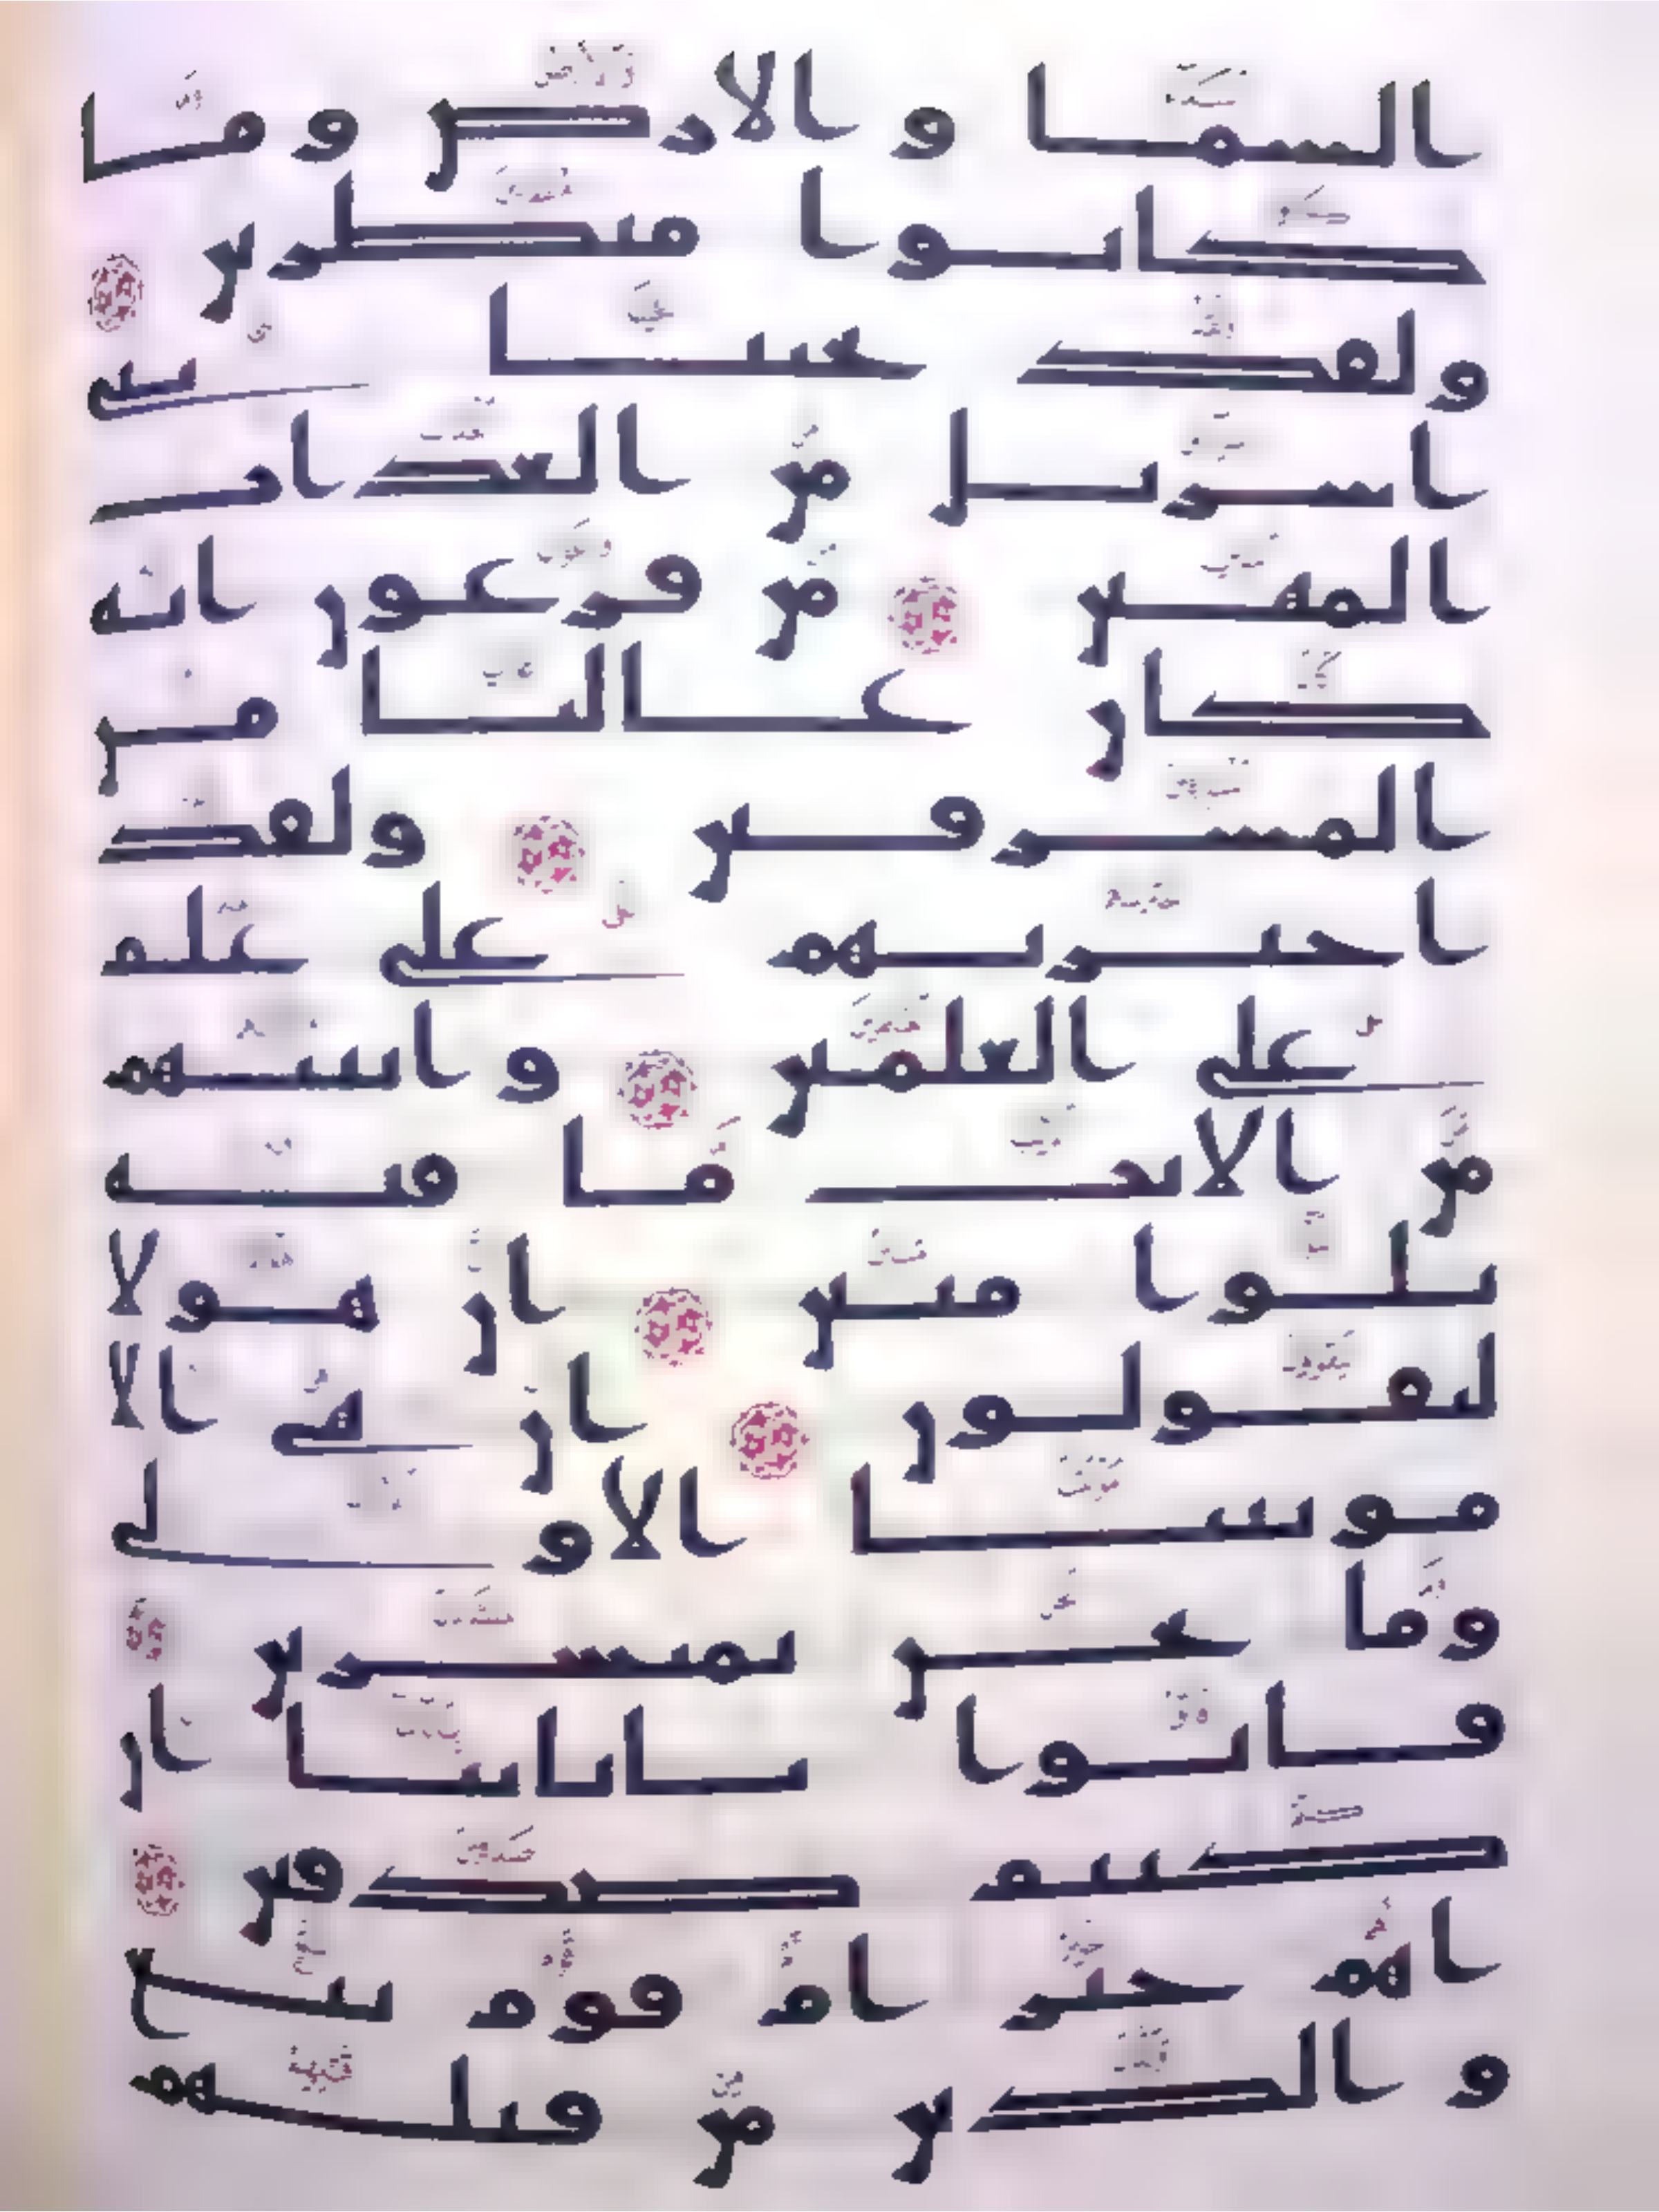 السما و الارض وما
كانوا منظرين
ولقد نجينا بني
اسريل من العذاب
المهين من فرعون انه
كان عاليا من
المسرفين ولقد
اخترنهم على علم
على العلمين و اتينهم
من الايت ما فيه
بلوا مبين ان هولا
ليقولون ان هي الا
موتتنا الاولى
وما نحن بمنشرين
فاتوا باباينا ان
كنتم صدقين
اهم خير ام قوم تبع
و الذين من قبلهم